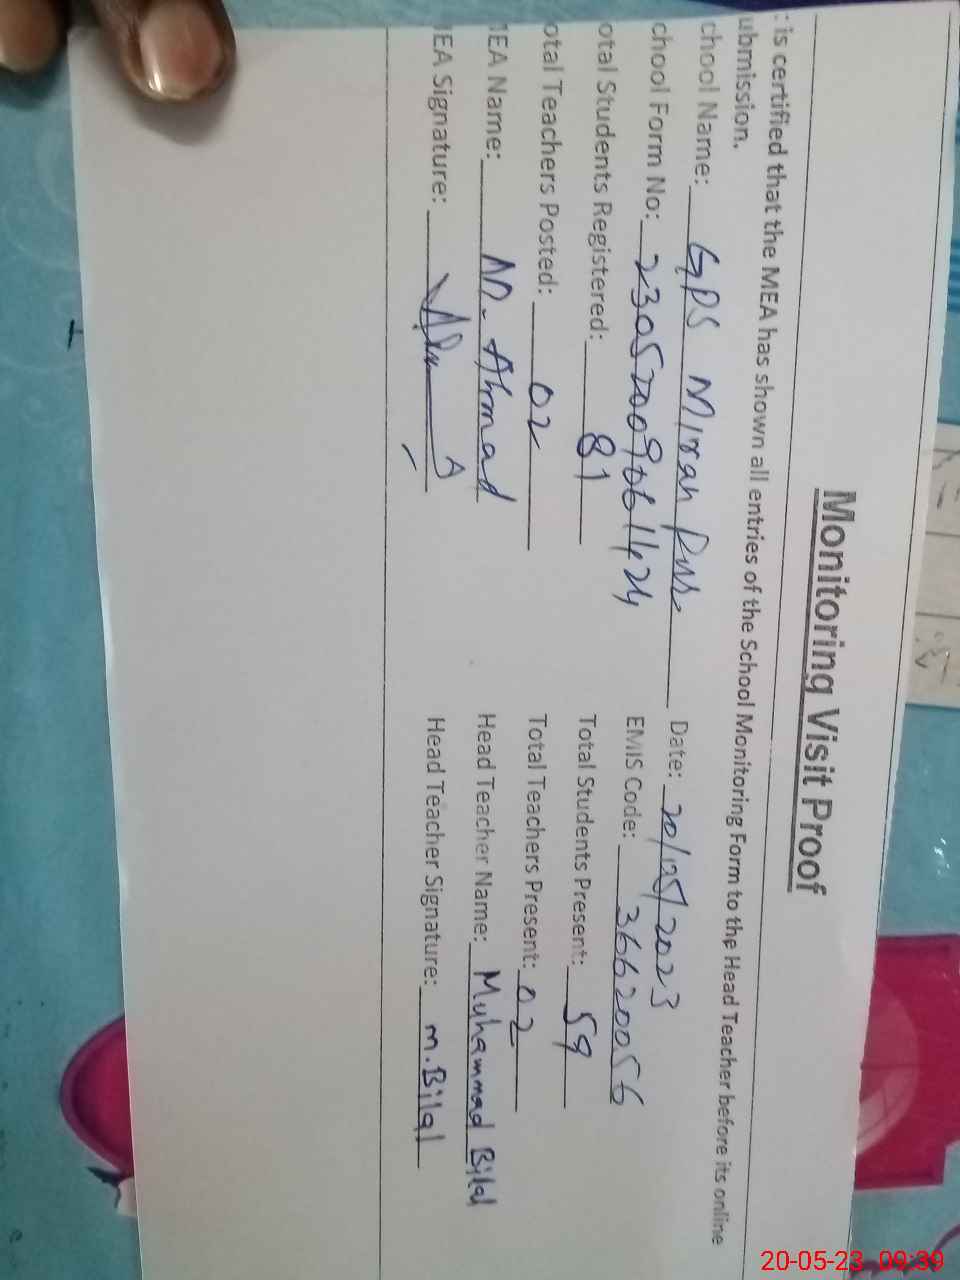 Monitoring Visit Proof
: is certified that the MEA has shown all entries of the School Monitoring Form to the Head Teacher before its online
ubmission.
chool Name: GPS Miran Pur Date: 20/05/2023
chool Form No: 230520090611424 EMIS Code: 36620056
otal Students Registered: 81 Total Students Present: 59
otal Teachers Posted: 02 Total Teachers Present: 02
MEA Name: M. Ahmad Head Teacher Name: Muhammad Bilal
EA Signature: Head Teacher Signature: M.Bilal
20-05-23 09:39